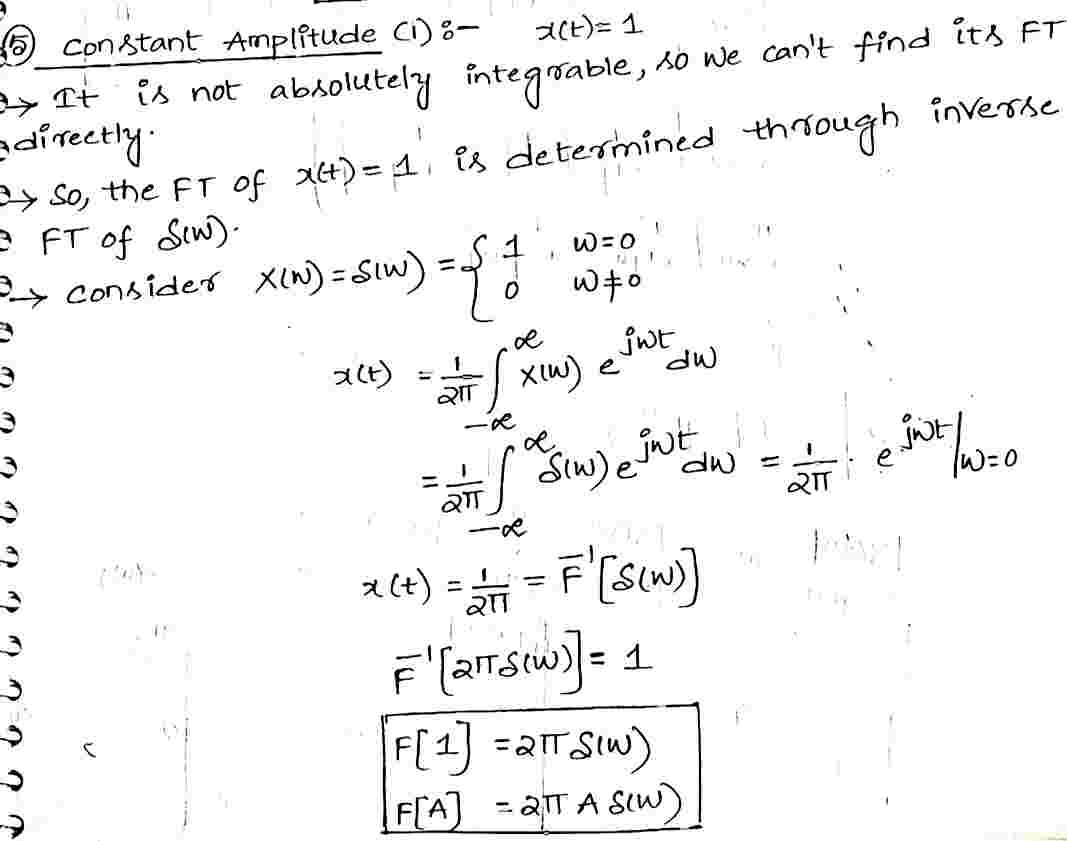 ⑤ Constant Amplitude (1) :- x(t) = 1
→ It is not absolutely integrable, so we can't find its FT
directly.
→ So, the FT of x(t) = 1 is determined through inverse
FT of δ(ω).
→ consider X(ω) = δ(ω) = { 1 ω=0
0 ω≠0
x(t) = 1/2π ∫_{-∞}^{∞} X(ω) e^{jωt} dω
= 1/2π ∫_{-∞}^{∞} δ(ω) e^{jωt} dω = 1/2π · e^{jωt} |ω=0
x(t) = 1/2π = F⁻¹[δ(ω)]
F⁻¹[2πδ(ω)] = 1
F[1] = 2π δ(ω)
F[A] = 2π A δ(ω)